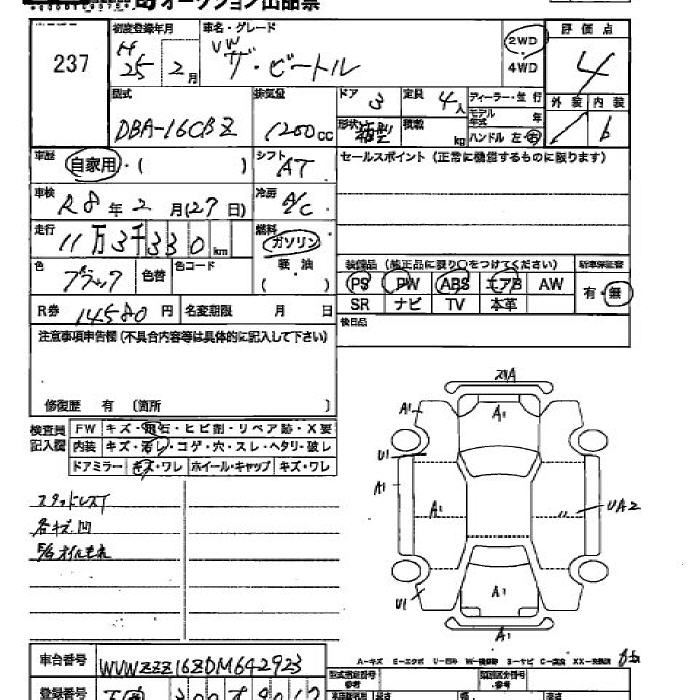 オークション出品票
237
初度登録年月
H25 2月
車名・グレード
VW
ザ・ビートル
2WD
4WD
評価点
4
型式
DBA-16CBZ
排気量
1200cc
ドア 3
定員 4人
ディーラー・並行
モデル年式 年
外装 内装
形状 箱型
積載 kg
ハンドル 左・右
車歴
自家用・( )
シフト
AT
セールスポイント (正常に機能するものに限ります)
車検
R8年2月(27日)
冷房
A/C
走行
11万3千330km
燃料
ガソリン
軽油
( )
色
ブラック
色替
色コード
装備品 (純正品に限り○をつけてください)
新車保証書
PS PW ABS エアB AW
有・無
SR ナビ TV 本革
R券 14580円
名変期限 月 日
後日品
注意事項申告欄(不具合内容等は具体的に記入して下さい)
修復歴 有 (箇所 )
検査員記入欄
FW キズ・飛石・ヒビ割・リペア跡・X要
内装 キズ・汚レ・コゲ・穴・スレ・ヘタリ・破レ
ドアミラー キズ・ワレ ホイール・キャップ キズ・ワレ
スタッドレスT
各キズ凹
E/Gオイルもれ
A1
A1
U1
A1
A1
UA2
U1
A1
A1
車台番号
WVWZZZ16ZDM642923
登録番号